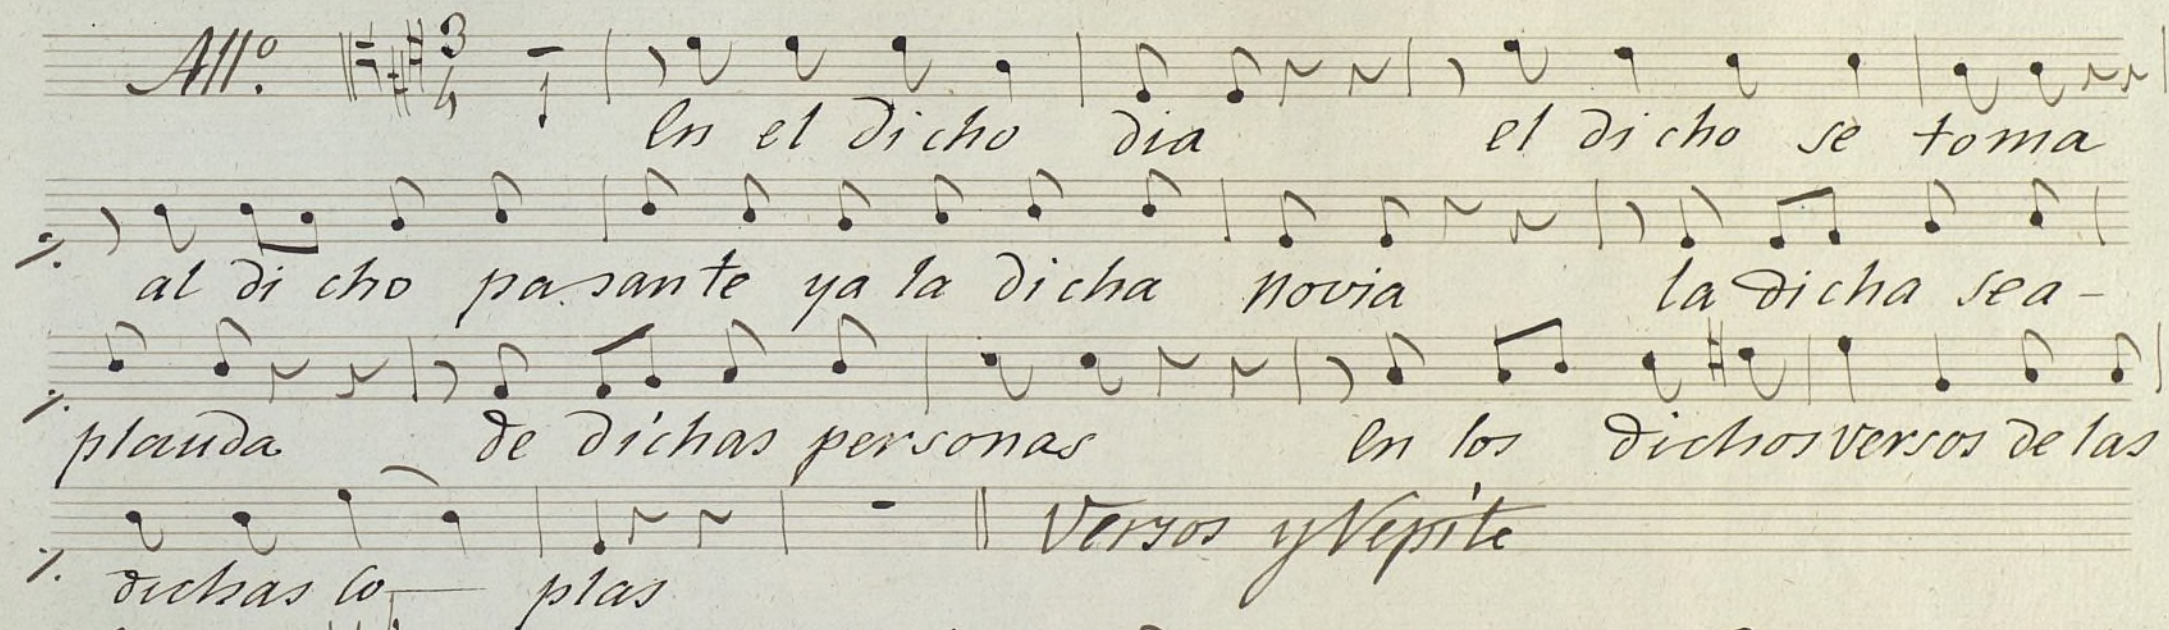 All.º 3 4 1
En el dicho dia el dicho se toma
al dicho pasante ya la dicha novia la dicha sea-
plauda de dichas personas En los dichos versos de las
dichas co plas
Versos y Repite